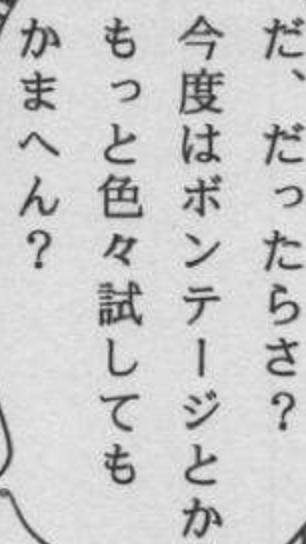 だ、だったらさ？
今度はボンテージとか
もっと色々試しても
かまへん？